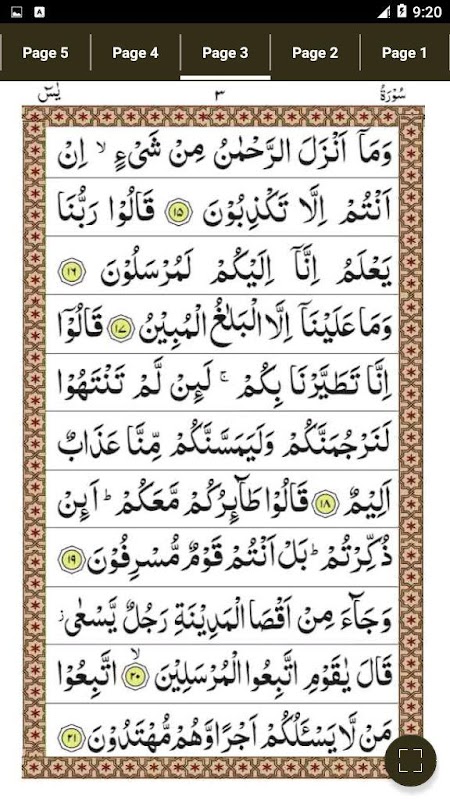 9:20
Page 5 Page 4 Page 3 Page 2 Page 1
سُوْرَةُ ٣ يٰسٓ
وَمَاۤ اَنْزَلَ الرَّحْمٰنُ مِنْ شَیْءٍ ۙ اِنْ
اَنْتُمْ اِلَّا تَكْذِبُوْنَ ۝۱۵ قَالُوْا رَبُّنَا
يَعْلَمُ اِنَّاۤ اِلَيْكُمْ لَمُرْسَلُوْنَ ۝۱۶
وَمَا عَلَيْنَاۤ اِلَّا الْبَلٰغُ الْمُبِيْنُ ۝۱۷ قَالُوْۤا
اِنَّا تَطَيَّرْنَا بِكُمْ ۚ لَىِٕنْ لَّمْ تَنْتَهُوْا
لَنَرْجُمَنَّكُمْ وَلَيَمَسَّنَّكُمْ مِّنَّا عَذَابٌ
اَلِيْمٌ ۝۱۸ قَالُوْا طَاۤىِٕرُكُمْ مَّعَكُمْ ؕ اَىِٕنْ
ذُكِّرْتُمْ ؕ بَلْ اَنْتُمْ قَوْمٌ مُّسْرِفُوْنَ ۝۱۹
وَجَاۤءَ مِنْ اَقْصَا الْمَدِيْنَةِ رَجُلٌ يَّسْعٰى ز
قَالَ يٰقَوْمِ اتَّبِعُوا الْمُرْسَلِيْنَ ۙ۝۲۰ اتَّبِعُوْا
مَنْ لَّا يَسْـَٔلُكُمْ اَجْرًا وَّهُمْ مُّهْتَدُوْنَ ۝۲۱